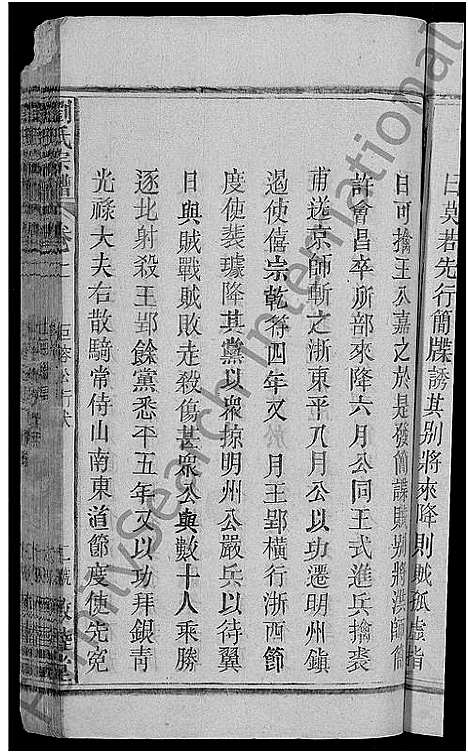 曰莫若先行簡牒誘其别將來降則賊孤虛指
日可擒王公嘉之於是發簡諜賊别將洪師簡
許會昌卒所部來降六月公同王式進兵擒裘
甫送京師斬之浙東平八月公以功遷明州鎮
遏使僖宗乾符四年又 月王郢橫行浙西節
度使裴璩降其黨以衆掠明州公嚴兵以待翼
日與賊戰賊敗走殺傷甚衆公與數十人乘勝
逐北射殺王郢餘黨悉平五年又以功拜銀青
光祿大夫右散騎常侍山南東道節度使先宛
劉氏宗譜 卷
FamilySearch International